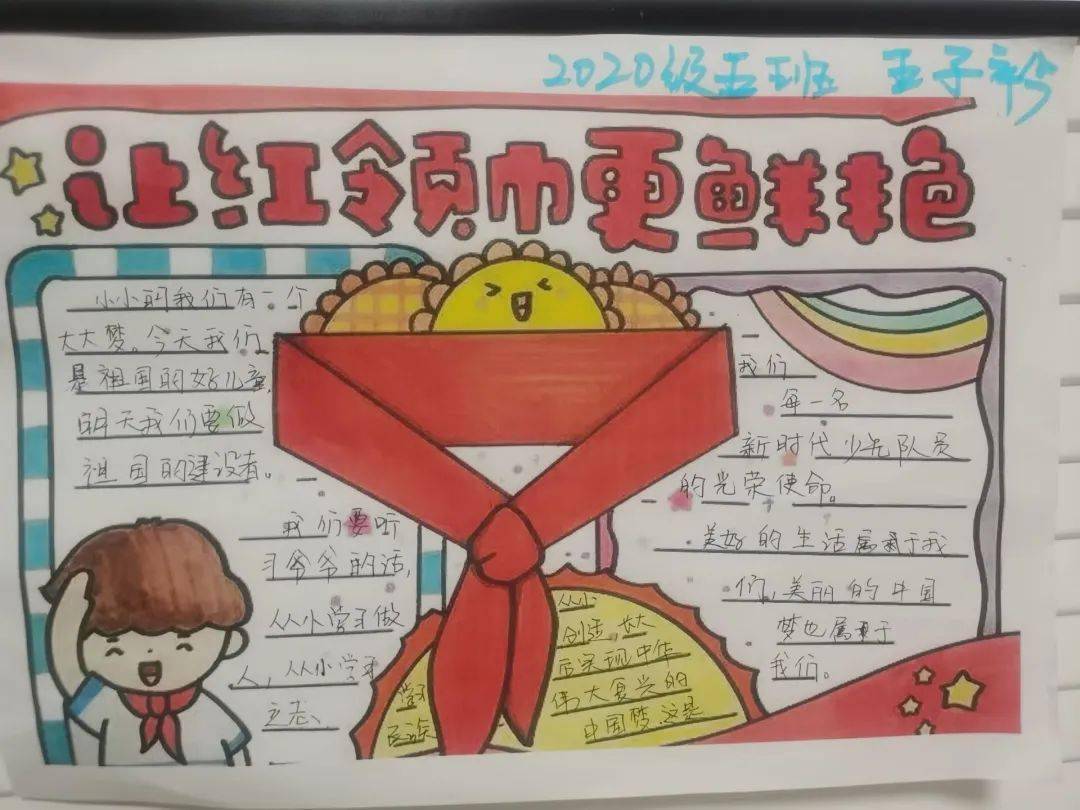 2020级五班 王子
让红领巾更鲜艳
小小的我们有一个
大大梦。今天我们
是祖国的好儿童,
明天我们要做
祖国的建设者。
我们要听
习爷爷的话,
从小学习做
人,从小学习
立志、
从小
创造,长大
后实现中华
学习
伟大复兴的
民族
中国梦,这是
我们
每一名
新时代少先队员
的光荣使命。
美好的生活属于我
们,美丽的中国
梦也属于
我们。